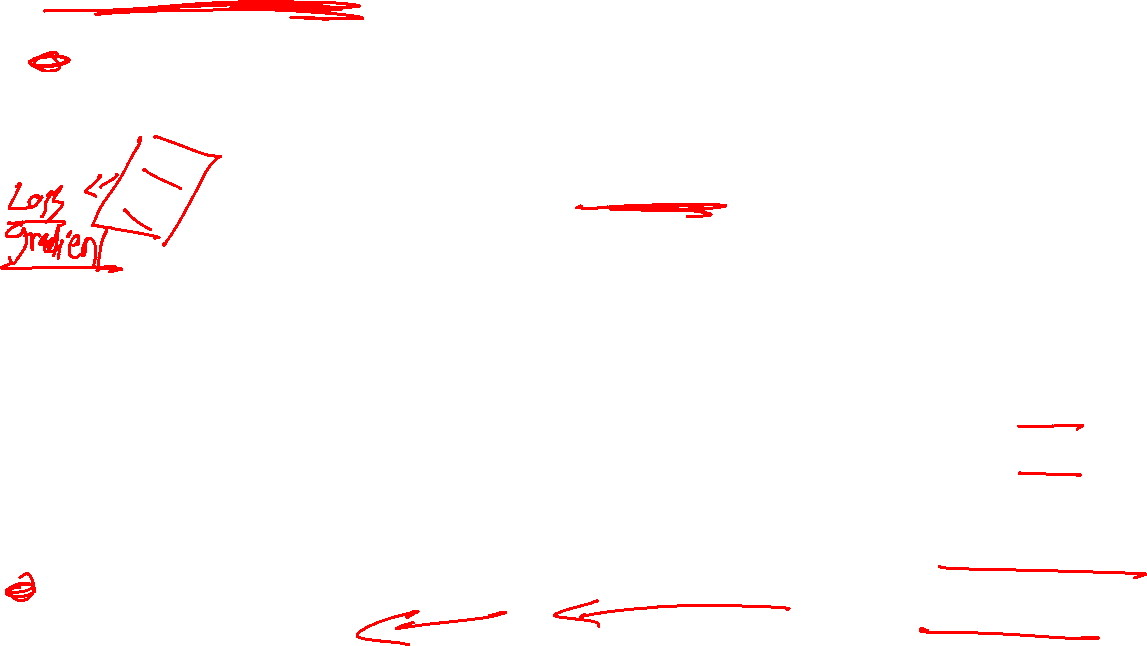 Loss
gradient